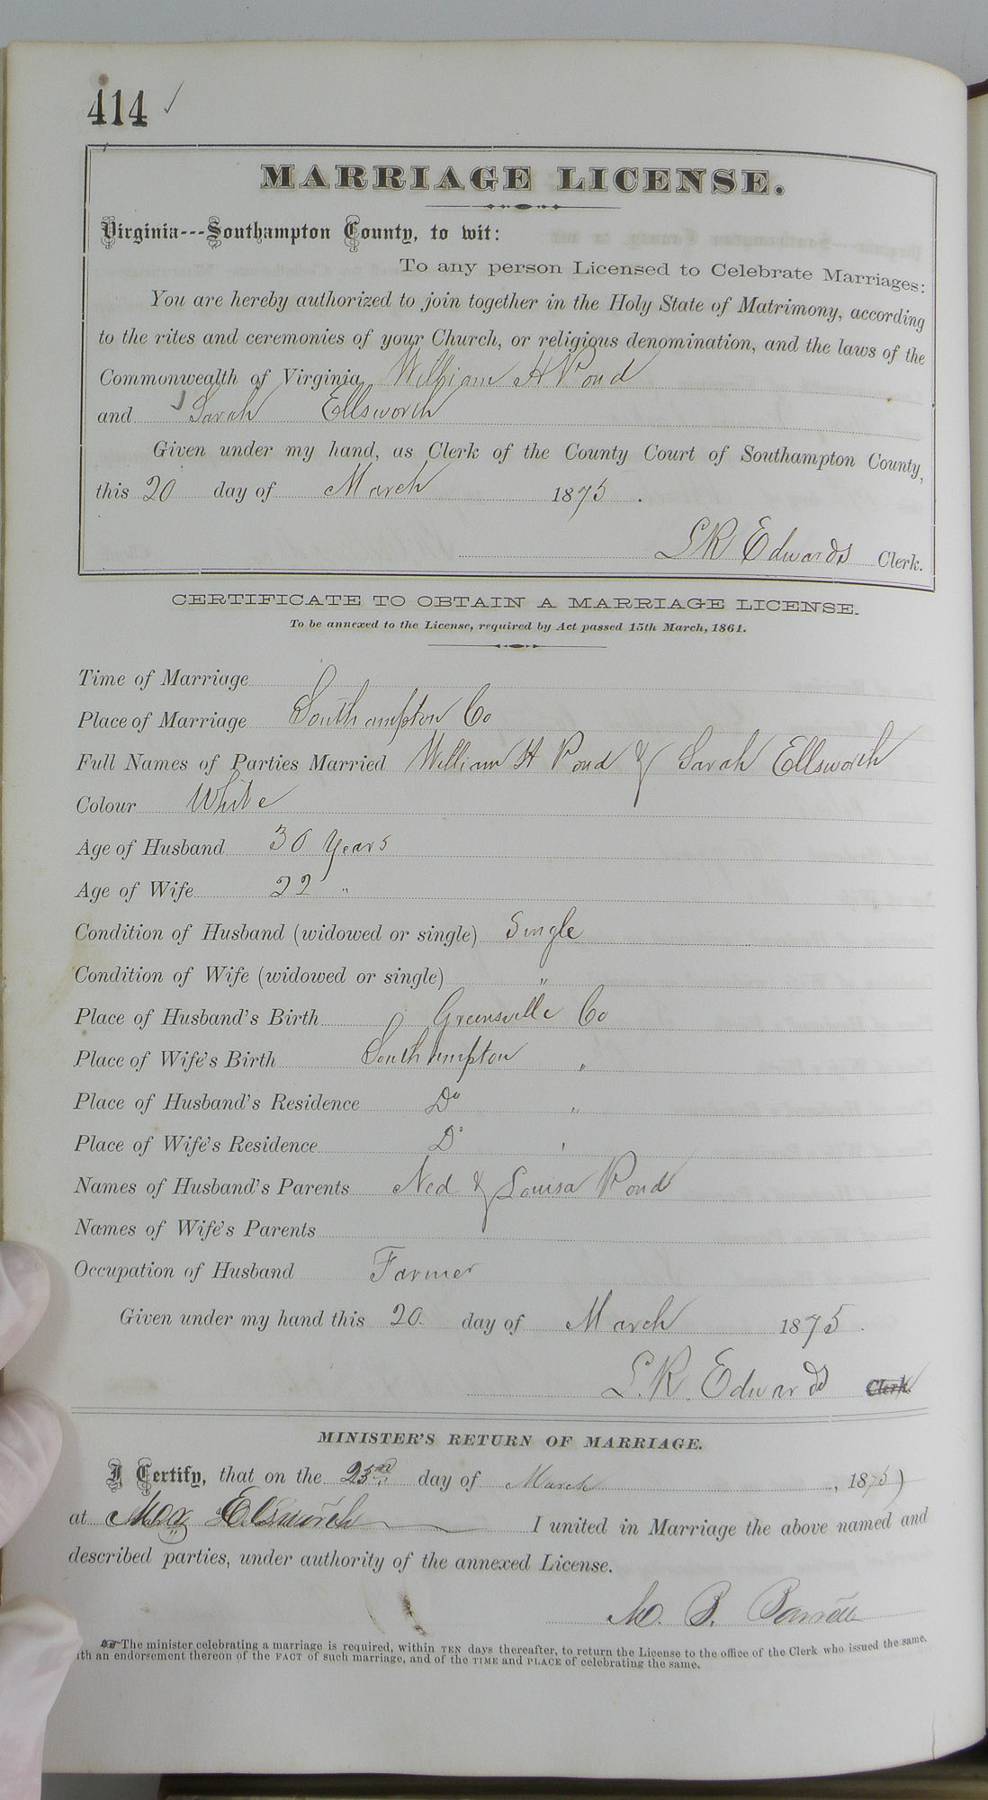 414 ✓
MARRIAGE LICENSE.
Virginia---Southampton County, to wit:
To any person Licensed to Celebrate Marriages:
You are hereby authorized to join together in the Holy State of Matrimony, according
to the rites and ceremonies of your Church, or religious denomination, and the laws of the
Commonwealth of Virginia, William H Pond
and Sarah Ellsworth
Given under my hand, as Clerk of the County Court of Southampton County,
this 20 day of March 1875.
L R Edwards Clerk.
CERTIFICATE TO OBTAIN A MARRIAGE LICENSE.
To be annexed to the License, required by Act passed 15th March, 1861.
Time of Marriage
Place of Marriage Southampton Co
Full Names of Parties Married William H Pond & Sarah Ellsworth
Colour White
Age of Husband 30 Years
Age of Wife 22 "
Condition of Husband (widowed or single) Single
Condition of Wife (widowed or single) "
Place of Husband's Birth Greensville Co
Place of Wife's Birth Southampton "
Place of Husband's Residence Do "
Place of Wife's Residence Do "
Names of Husband's Parents Ned & Louisa Pond
Names of Wife's Parents
Occupation of Husband Farmer
Given under my hand this 20 day of March 1875.
L. R. Edwards Clerk.
MINISTER'S RETURN OF MARRIAGE.
I Certify, that on the day of March, 1875)
at Elsworth I united in Marriage the above named and
described parties, under authority of the annexed License.
B. Barrett
The minister celebrating a marriage is required, within TEN days thereafter, to return the License to the office of the Clerk who issued the same,
ith an endorsement thereon of the FACT of such marriage, and of the TIME and PLACE of celebrating the same.